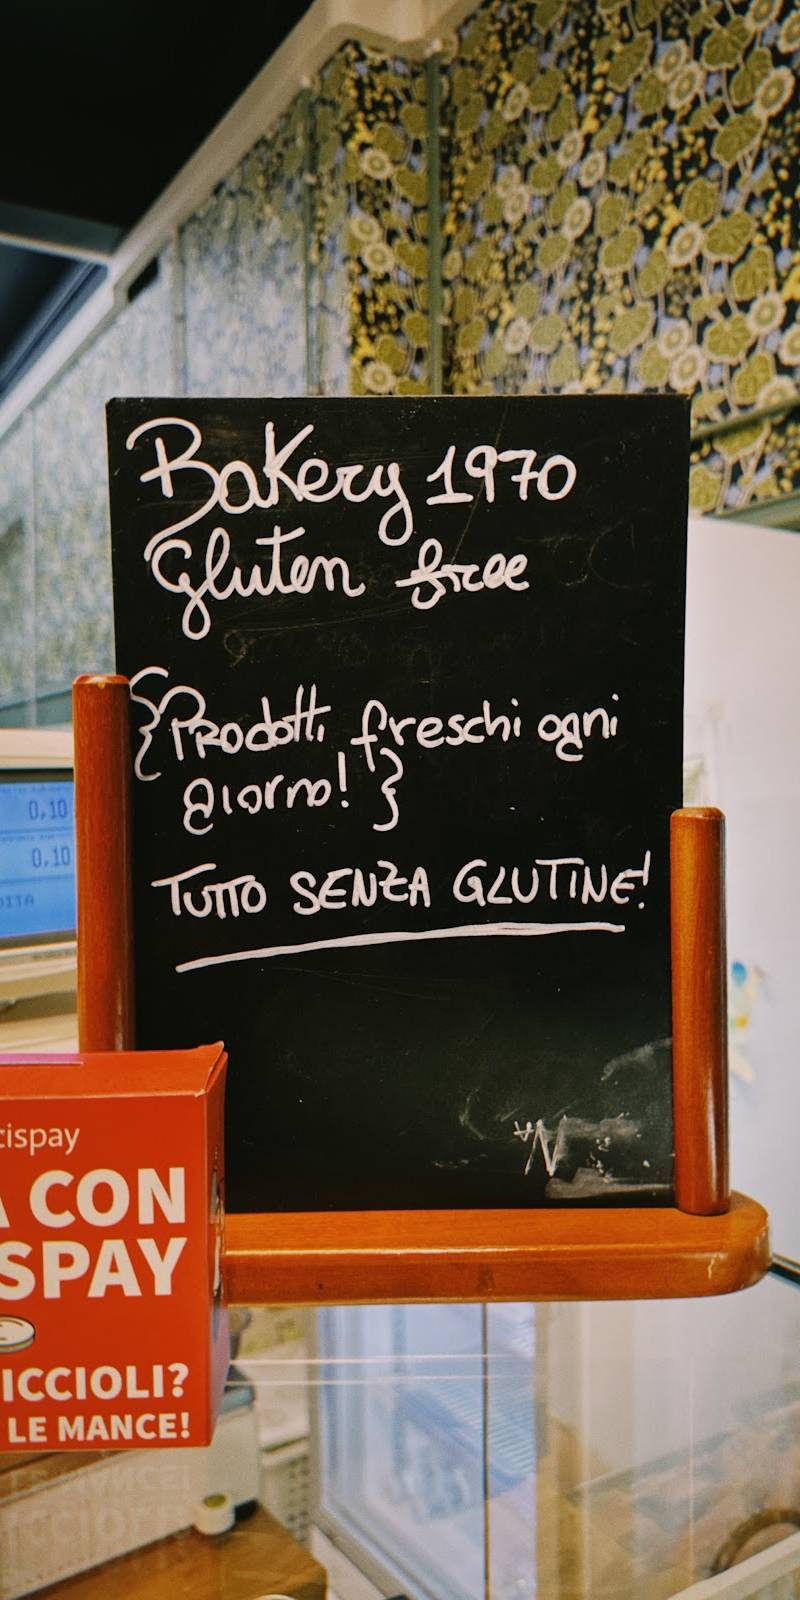 Bakery 1970
Gluten free
{Prodotti freschi ogni
giorno!}
TUTTO SENZA GLUTINE!
0,10
0,10
cispay
A CON
SPAY
ICCIOLI?
LE MANCE!